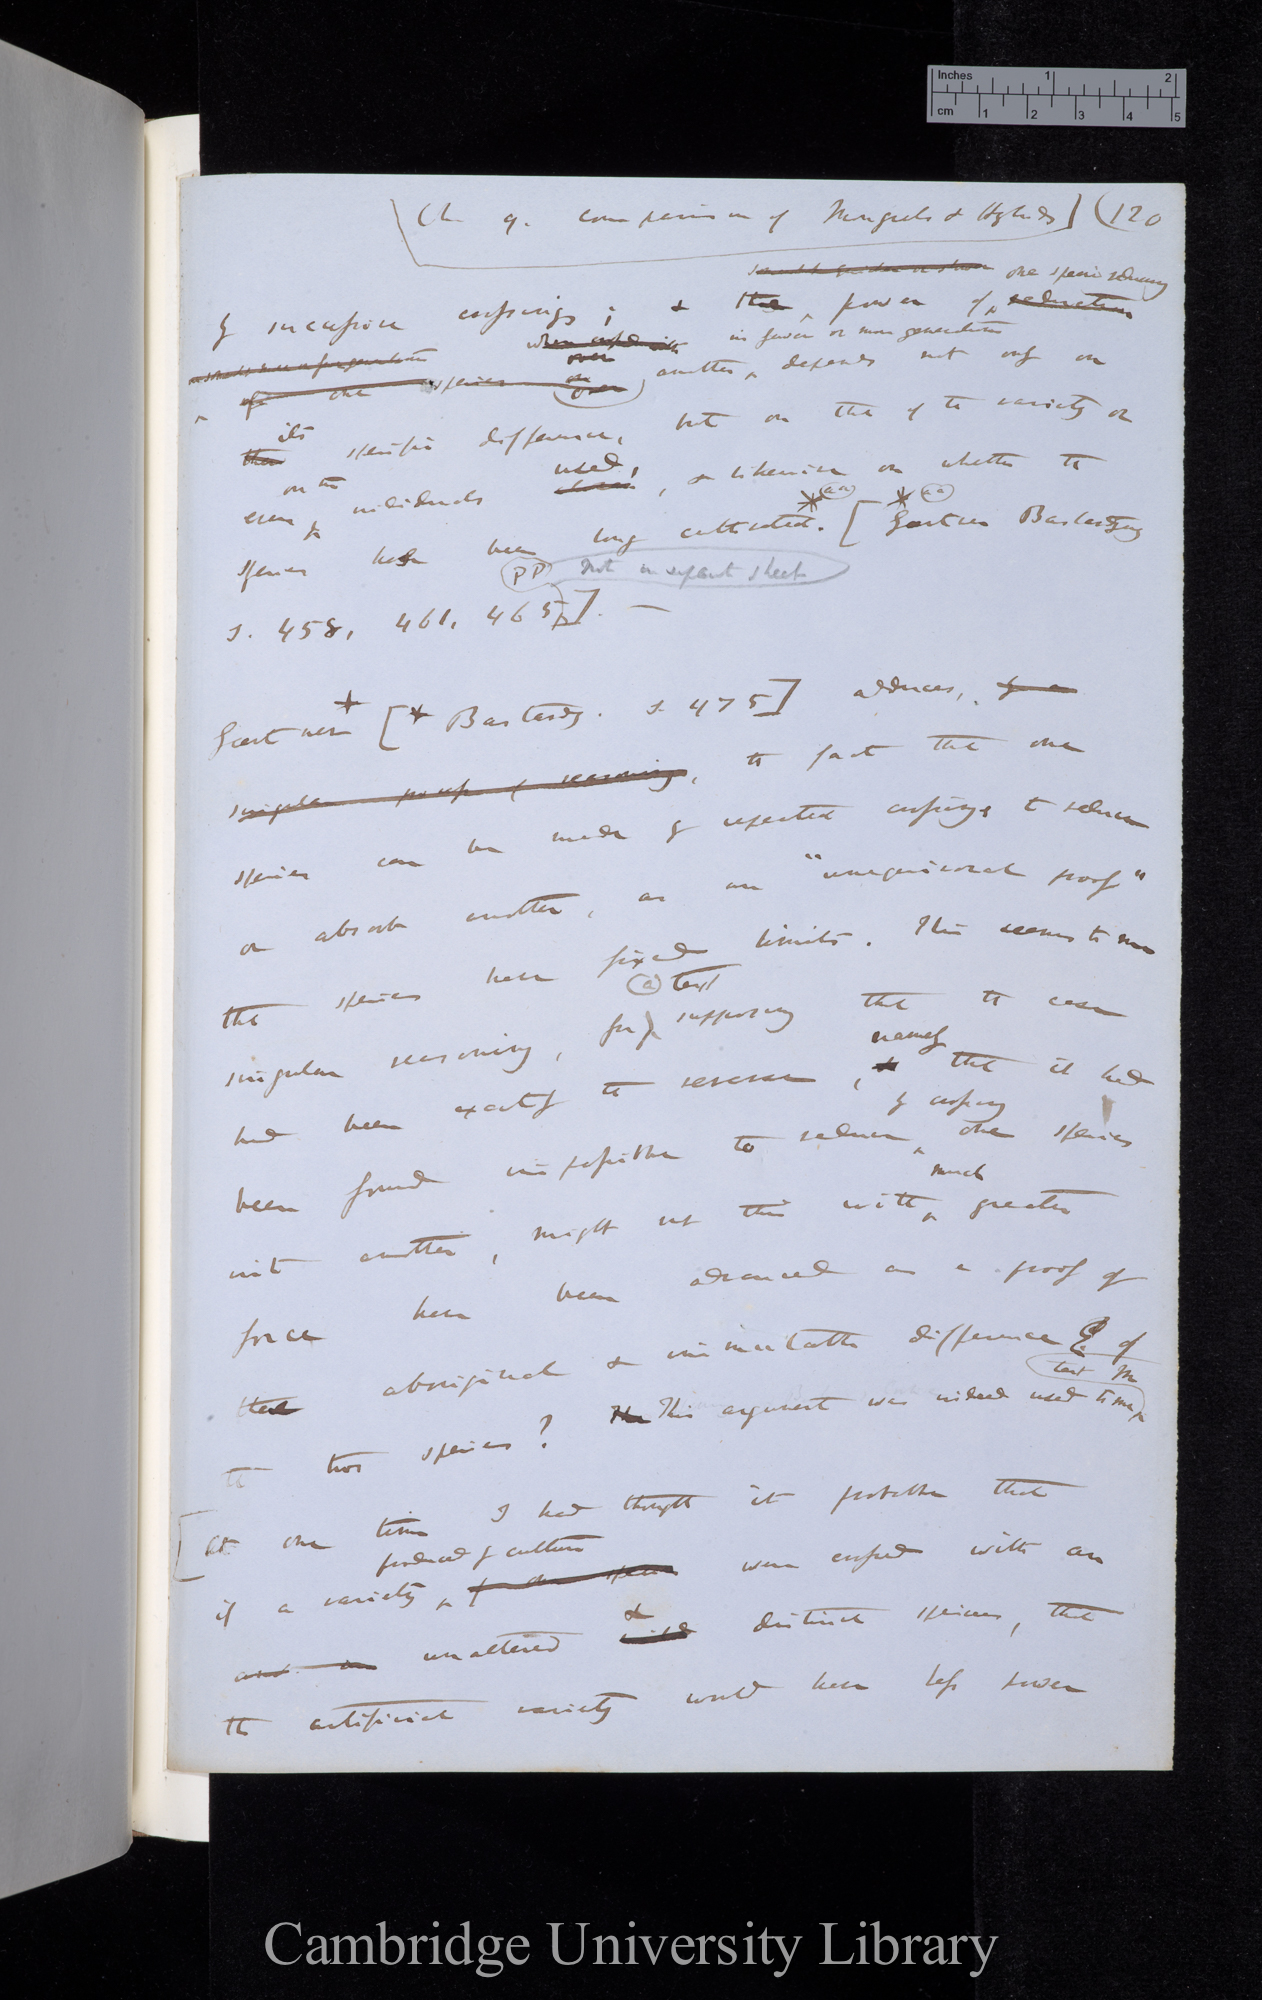 Inches 1 2
cm 1 2 3 4 5
Ch 9. Comparison of Mongrels & Hybrids] (120
one species reducing
by successive crossings; & the power of reduction
when crossed with in fewer or more generations
of one species over another, depends not only on
its
their specific difference, but on that of the variety or
on the used,
even individuals chosen, & likewise on whether the
(aa) (aa)
species has been long cultivated.* [* Gærtner Bastardzeug
(PP) Not on separate sheet
s. 458, 461, 465]. —
Gærtner* [* Bastardz. s. 475] adduces,
singular proof of reasoning, the fact that one
species can be made by repeated crossings to reduce
or absorb another, as an "unequivocal proof"
that species have fixed limits. This seems to me
(a) text
singular reasoning, for supposing that the case
namely
had been exactly the reverse, & that it had
by crossing
been found impossible to reduce one species
much
into another, might not this with greater
force have been advanced as a proof of
that aboriginal & immutable difference of
text
the two species? This argument was indeed used to me
[At one time I had thought it probable that
produced by culture
if a variety of one species were crossed with an
&
and an unaltered wild distinct species, that
the artificial variety would have less power
Cambridge University Library